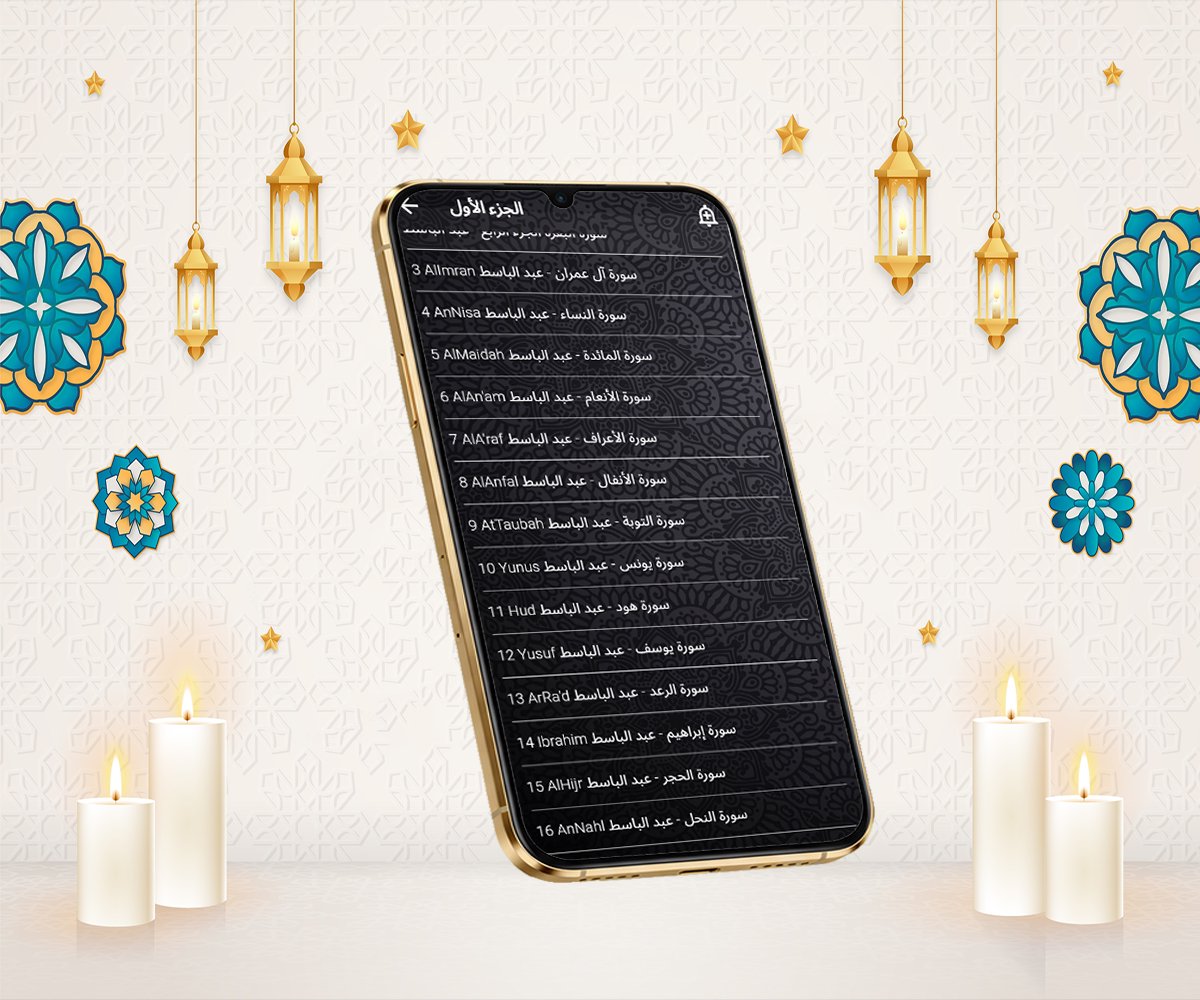 الجزء الأول
سورة البقرة الجزء الرابع - عبد الباسط
3 AlImran سورة آل عمران - عبد الباسط
4 AnNisa سورة النساء - عبد الباسط
5 AlMaidah سورة المائدة - عبد الباسط
6 AlAn'am سورة الأنعام - عبد الباسط
7 AlA'raf سورة الأعراف - عبد الباسط
8 AlAnfal سورة الأنفال - عبد الباسط
9 AtTaubah سورة التوبة - عبد الباسط
10 Yunus سورة يونس - عبد الباسط
11 Hud سورة هود - عبد الباسط
12 Yusuf سورة يوسف - عبد الباسط
13 ArRa'd سورة الرعد - عبد الباسط
14 Ibrahim سورة إبراهيم - عبد الباسط
15 AlHijr سورة الحجر - عبد الباسط
16 AnNahl سورة النحل - عبد الباسط